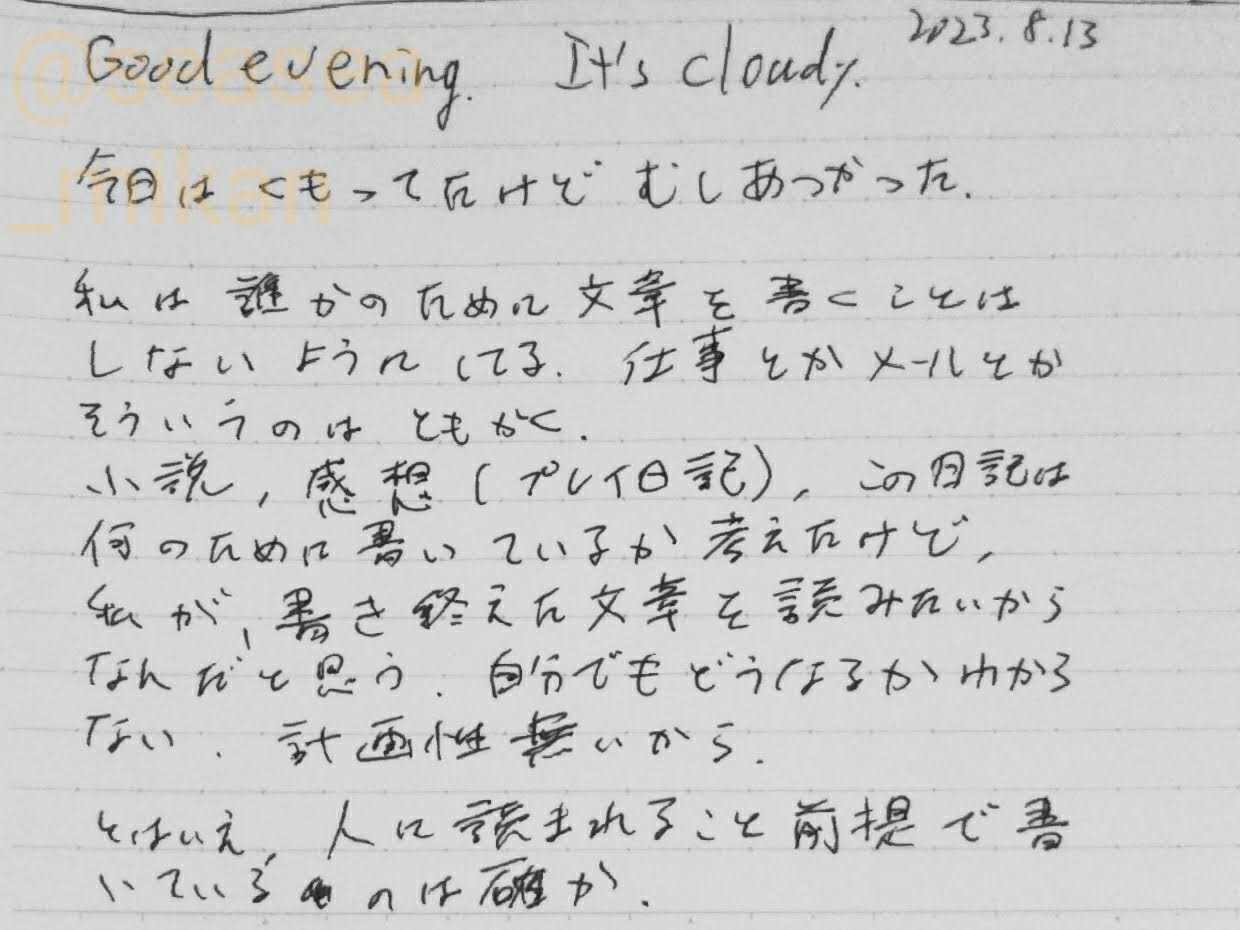 2023.8.13
Good evening. It's cloudy.
今日はくもってたけどむしあつかった.
私は誰かのために文章を書くことは
しないようにしてる. 仕事とかメールとか
そういうのはともかく.
小説, 感想(プレイ日記), この日記は
何のために書いているか考えたけど,
私が, 書き終えた文章を読みたいから
なんだと思う. 自分でもどうなるかわから
ない. 計画性無いから.
とはいえ, 人に読まれること前提で書
いているのは確か.
_mikan